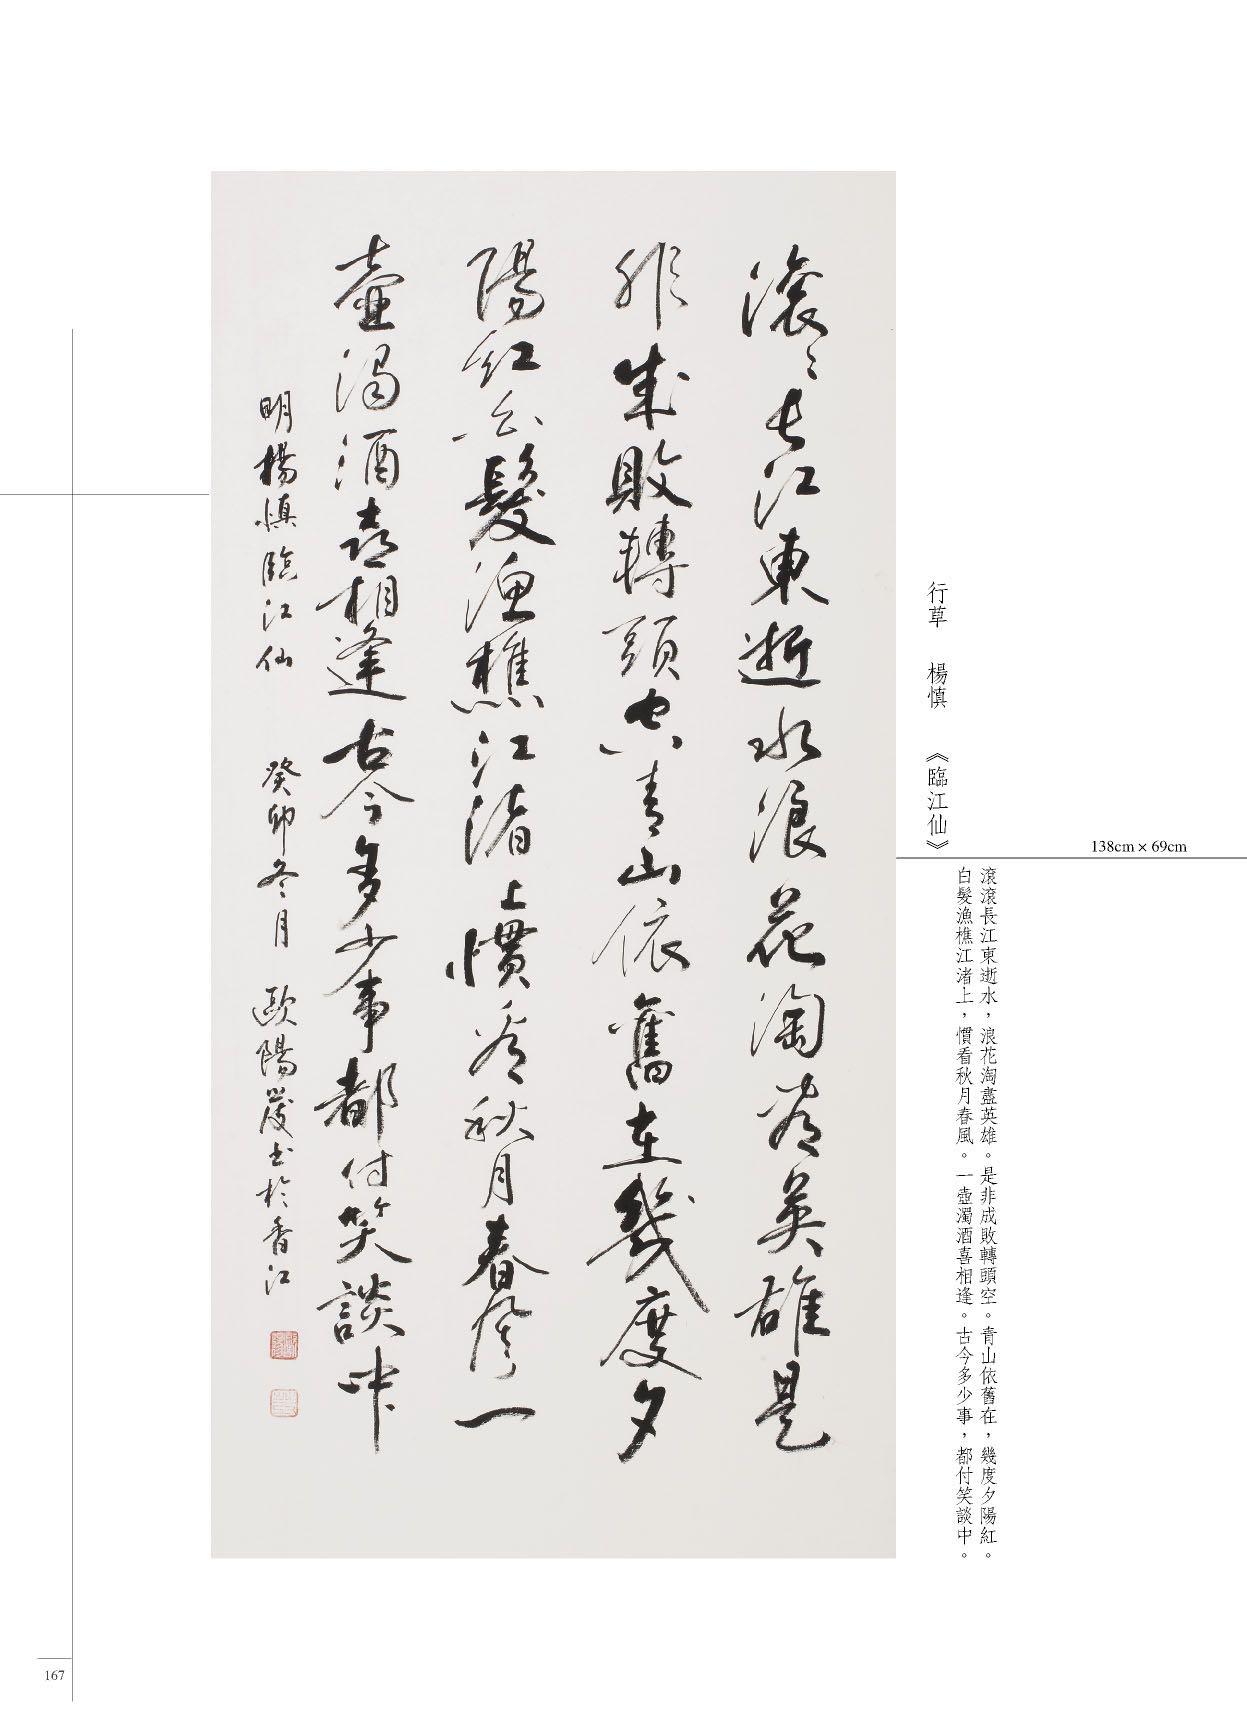 滾〻長江東逝水浪花淘盡英雄是
非成敗轉頭空青山依舊在幾度夕
陽紅白髮漁樵江渚上慣看秋月春風一
壺濁酒喜相逢古今多少事都付笑談中
明楊慎臨江仙 癸卯冬月 歐陽 書於香江
行草 楊慎 《臨江仙》
138cm × 69cm
滾滾長江東逝水，浪花淘盡英雄。是非成敗轉頭空。青山依舊在，幾度夕陽紅。
白髮漁樵江渚上，慣看秋月春風。一壺濁酒喜相逢。古今多少事，都付笑談中。
167